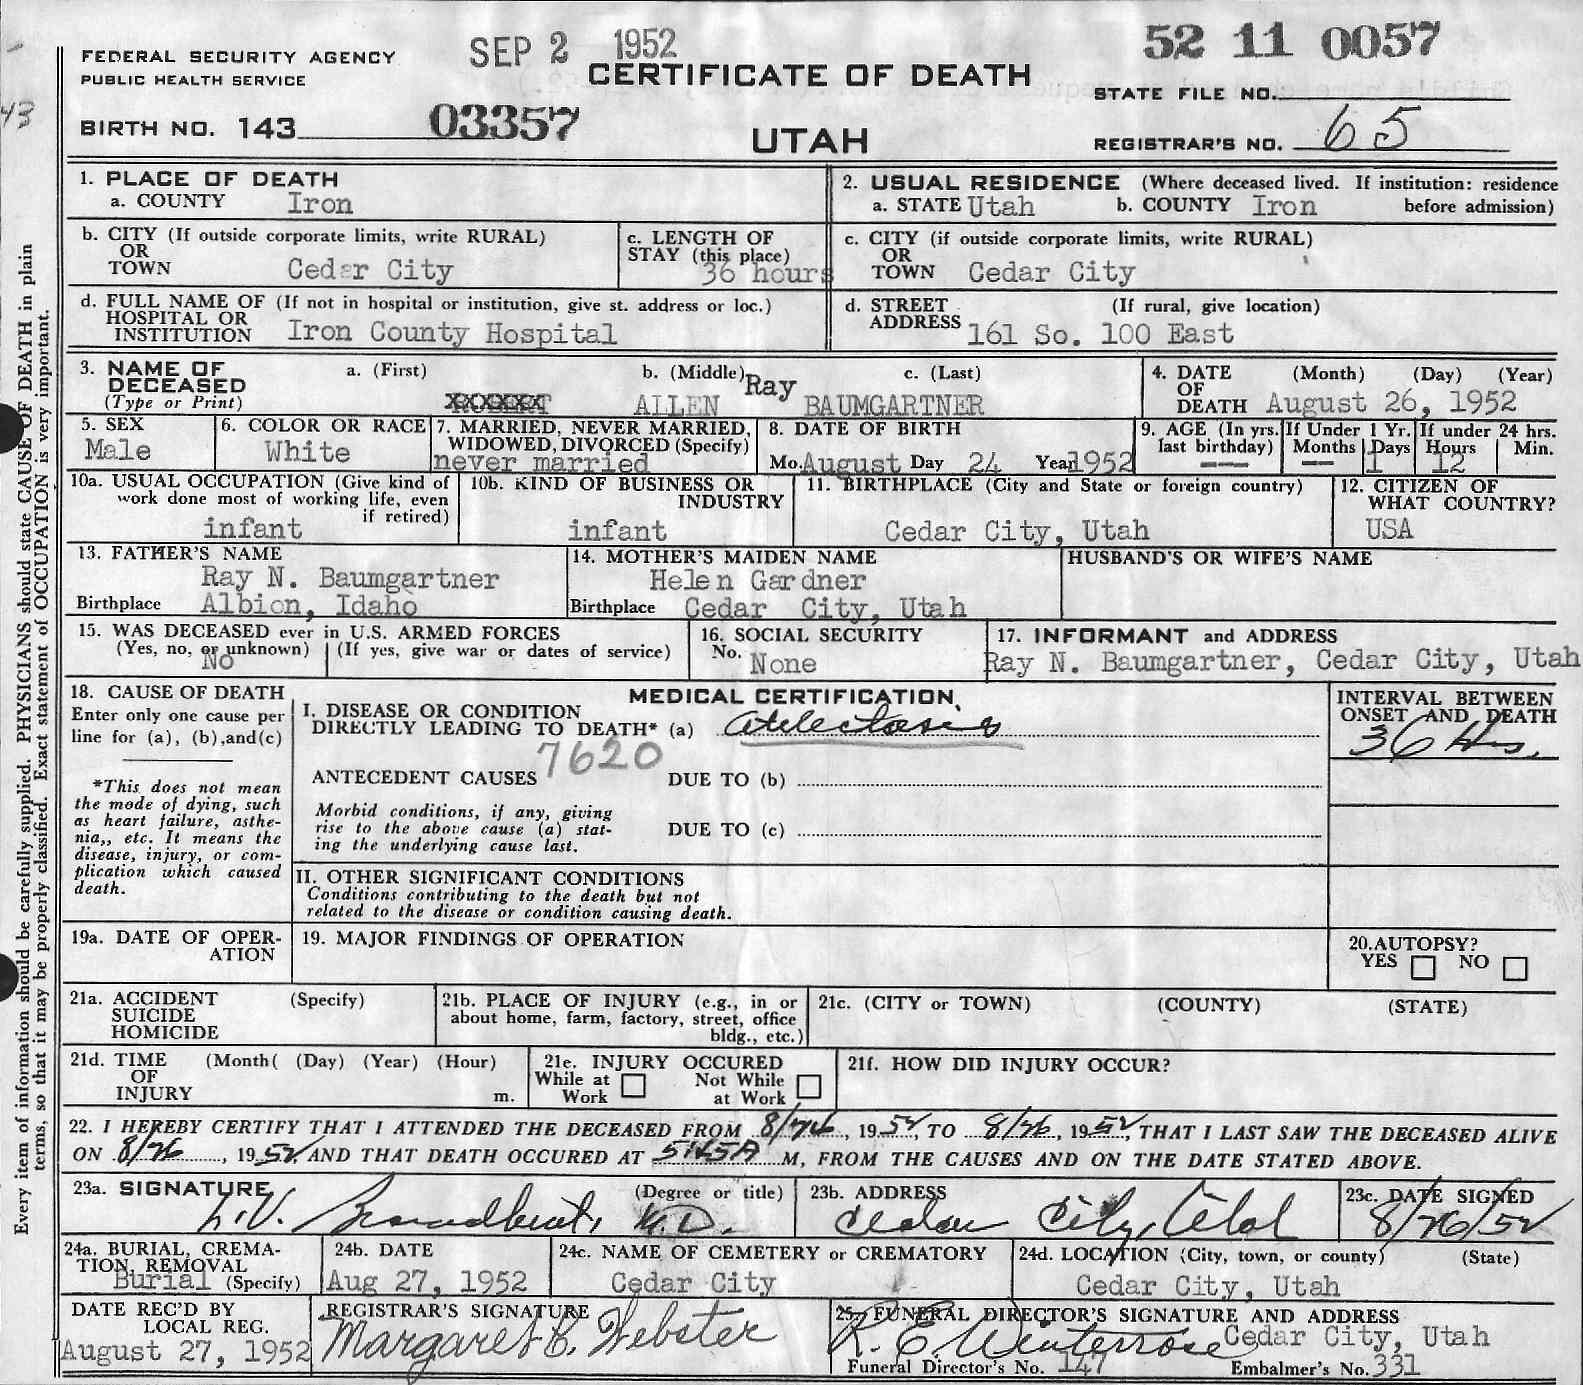 SEP 2 1952
52 11 0057
FEDERAL SECURITY AGENCY
PUBLIC HEALTH SERVICE
CERTIFICATE OF DEATH
STATE FILE NO.
43
BIRTH NO. 143 03357
UTAH
REGISTRAR'S NO. 65
Every item of information should be carefully supplied. PHYSICIANS should state CAUSE OF DEATH in plain
terms, so that it may be properly classified. Exact statement of OCCUPATION is very important.
1. PLACE OF DEATH
a. COUNTY Iron
2. USUAL RESIDENCE (Where deceased lived. If institution: residence
a. STATE Utah b. COUNTY Iron before admission)
b. CITY (If outside corporate limits, write RURAL)
OR
TOWN Cedar City
c. LENGTH OF
STAY (this place)
36 hours
c. CITY (if outside corporate limits, write RURAL)
OR
TOWN Cedar City
d. FULL NAME OF (If not in hospital or institution, give st. address or loc.)
HOSPITAL OR
INSTITUTION Iron County Hospital
d. STREET (If rural, give location)
ADDRESS 161 So. 100 East
3. NAME OF a. (First) b. (Middle) c. (Last)
DECEASED
(Type or Print) ALLEN Ray BAUMGARTNER
4. DATE (Month) (Day) (Year)
OF
DEATH August 26, 1952
5. SEX
Male
6. COLOR OR RACE
White
7. MARRIED, NEVER MARRIED,
WIDOWED, DIVORCED (Specify)
never married
8. DATE OF BIRTH
Mo. August Day 24 Year 1952
9. AGE (In yrs. last birthday) ---
If Under 1 Yr. Months -- Days 1
If under 24 hrs. Hours 12 Min.
10a. USUAL OCCUPATION (Give kind of
work done most of working life, even
if retired)
infant
10b. KIND OF BUSINESS OR
INDUSTRY
infant
11. BIRTHPLACE (City and State or foreign country)
Cedar City, Utah
12. CITIZEN OF
WHAT COUNTRY?
USA
13. FATHER'S NAME
Ray N. Baumgartner
Birthplace Albion, Idaho
14. MOTHER'S MAIDEN NAME
Helen Gardner
Birthplace Cedar City, Utah
HUSBAND'S OR WIFE'S NAME
15. WAS DECEASED ever in U.S. ARMED FORCES
(Yes, no, or unknown) (If yes, give war or dates of service)
No
16. SOCIAL SECURITY
No. None
17. INFORMANT and ADDRESS
Ray N. Baumgartner, Cedar City, Utah
18. CAUSE OF DEATH
Enter only one cause per
line for (a), (b), and (c)
*This does not mean
the mode of dying, such
as heart failure, asthe-
nia,, etc. It means the
disease, injury, or com-
plication which caused
death.
MEDICAL CERTIFICATION
I. DISEASE OR CONDITION
DIRECTLY LEADING TO DEATH* (a) Atelectasis
7620
ANTECEDENT CAUSES DUE TO (b)
Morbid conditions, if any, giving
rise to the above cause (a) stat-
ing the underlying cause last.
DUE TO (c)
INTERVAL BETWEEN
ONSET AND DEATH
36 Hrs.
II. OTHER SIGNIFICANT CONDITIONS
Conditions contributing to the death but not
related to the disease or condition causing death.
19a. DATE OF OPER-
ATION
19. MAJOR FINDINGS OF OPERATION
20. AUTOPSY?
YES NO
21a. ACCIDENT (Specify)
SUICIDE
HOMICIDE
21b. PLACE OF INJURY (e.g., in or
about home, farm, factory, street, office
bldg., etc.)
21c. (CITY or TOWN) (COUNTY) (STATE)
21d. TIME (Month( (Day) (Year) (Hour)
OF
INJURY m.
21e. INJURY OCCURED
While at Work Not While at Work
21f. HOW DID INJURY OCCUR?
22. I HEREBY CERTIFY THAT I ATTENDED THE DECEASED FROM 8/26, 1952, TO 8/26, 1952, THAT I LAST SAW THE DECEASED ALIVE
ON 8/26, 1952, AND THAT DEATH OCCURED AT 5:45A M, FROM THE CAUSES AND ON THE DATE STATED ABOVE.
23a. SIGNATURE (Degree or title)
L.V. Broadbent, M.D.
23b. ADDRESS
Cedar City, Utah
23c. DATE SIGNED
8/26/52
24a. BURIAL, CREMA-
TION, REMOVAL
Burial (Specify)
24b. DATE
Aug 27, 1952
24c. NAME OF CEMETERY or CREMATORY
Cedar City
24d. LOCATION (City, town, or county) (State)
Cedar City, Utah
DATE REC'D BY
LOCAL REG.
August 27, 1952
REGISTRAR'S SIGNATURE
Margaret C. Webster
25. FUNERAL DIRECTOR'S SIGNATURE AND ADDRESS
R. E. Winterrose Cedar City, Utah
Funeral Director's No. 147 Embalmer's No. 331